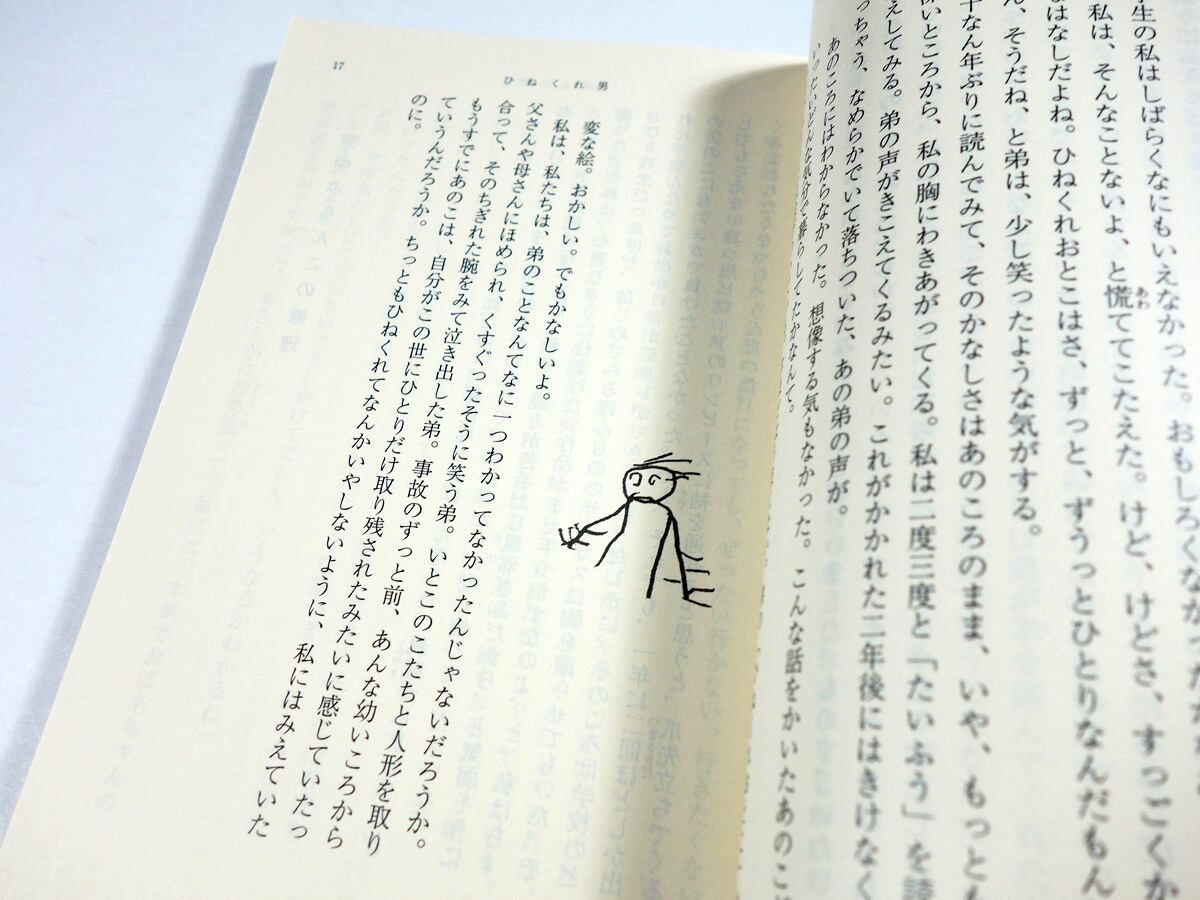 生の私はしばらくなにもいえなかった。おもしろくなかった
私は、そんなことないよ、と慌ててこたえた。けど、けどさ、すっごくか
あわ
なはなしだよね。ひねくれおとこはさ、ずっと、ずうっとひとりなんだもん
ん、そうだね、と弟は、少し笑ったような気がする。
十なん年ぶりに読んでみて、そのかなしさはあのころのまま、いや、もっと
深いところから、私の胸にわきあがってくる。私は二度三度と「たいふう」を読
えしてみる。弟の声がきこえてくるみたい。これがかかれた二年後にはきけなく
っちゃう、なめらかでいて落ちついた、あの弟の声が。
あのころにはわからなかった。想像する気もなかった。こんな話をかいたあのこ
いったいどんな気分で暮らしてたかなんて。
17
ひねくれ男
変な絵。おかしい。でもかなしいよ。
私は、私たちは、弟のことなんてなに一つわかってなかったんじゃないだろうか。
父さんや母さんにほめられ、くすぐったそうに笑う弟。いとこのこたちと人形を取り
合って、そのちぎれた腕をみて泣き出した弟。事故のずっと前、あんな幼いころから
もうすでにあのこは、自分がこの世にひとりだけ取り残されたみたいに感じていたっ
ていうんだろうか。ちっともひねくれてなんかいやしないように、私にはみえていた
のに。